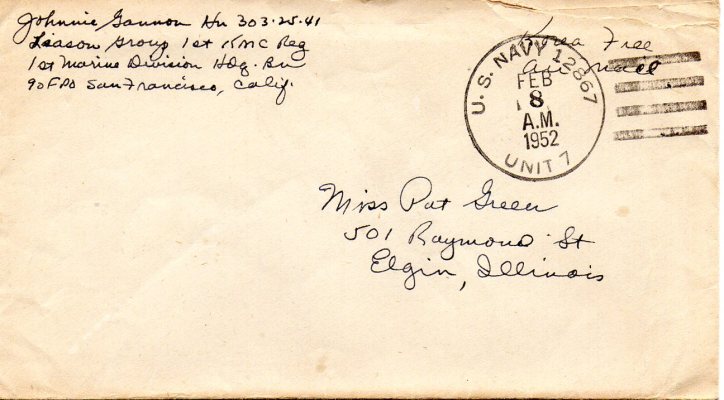 Johnnie Gannon Hn 303-25-41
Liason Group 1st KMC Reg
1st Marine Division Hdq. Bn
90 FPO San Francisco, Calif.
Korea Free
Air Mail
U.S. NAVY 12867
FEB
8
A.M.
1952
UNIT 7
Miss Pat Green
501 Raymond St
Elgin, Illinois